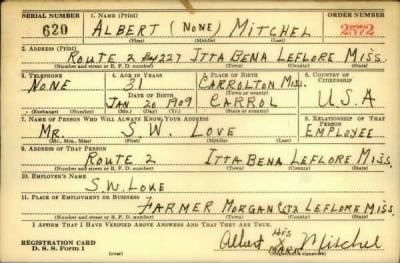 SERIAL NUMBER 1. NAME (Print) ORDER NUMBER
620 ALBERT (NONE) MITCHEL 2572
(First) (Middle) (Last)
2. ADDRESS (Print)
ROUTE 2 227 ITTA BENA LEFLORE MISS.
(Number and street or R. F. D. number) (Town) (County) (State)
3. TELEPHONE 4. AGE IN YEARS 5. PLACE OF BIRTH 6. COUNTRY OF CITIZENSHIP
NONE 31 CARROLTON MISS.
DATE OF BIRTH (Town or county)
JAN 20 1909 CARROL U.S.A
(Exchange) (Number) (Mo.) (Day) (Yr.) (State or country)
7. NAME OF PERSON WHO WILL ALWAYS KNOW YOUR ADDRESS 8. RELATIONSHIP OF THAT PERSON
MR. S.W. LOVE EMPLOYEE
(Mr., Mrs., Miss) (First) (Middle) (Last)
9. ADDRESS OF THAT PERSON
ROUTE 2 ITTA BENA LEFLORE MISS.
(Number and street or R. F. D. number) (Town) (County) (State)
10. EMPLOYER'S NAME
S.W. LOVE
11. PLACE OF EMPLOYMENT OR BUSINESS
FARMER MORGAN CITY LEFLORE MISS.
(Number and street or R. F. D. number) (Town) (County) (State)
I AFFIRM THAT I HAVE VERIFIED ABOVE ANSWERS AND THAT THEY ARE TRUE.
REGISTRATION CARD
D. S. S. Form 1
His
Albert X Mitchel
Mark